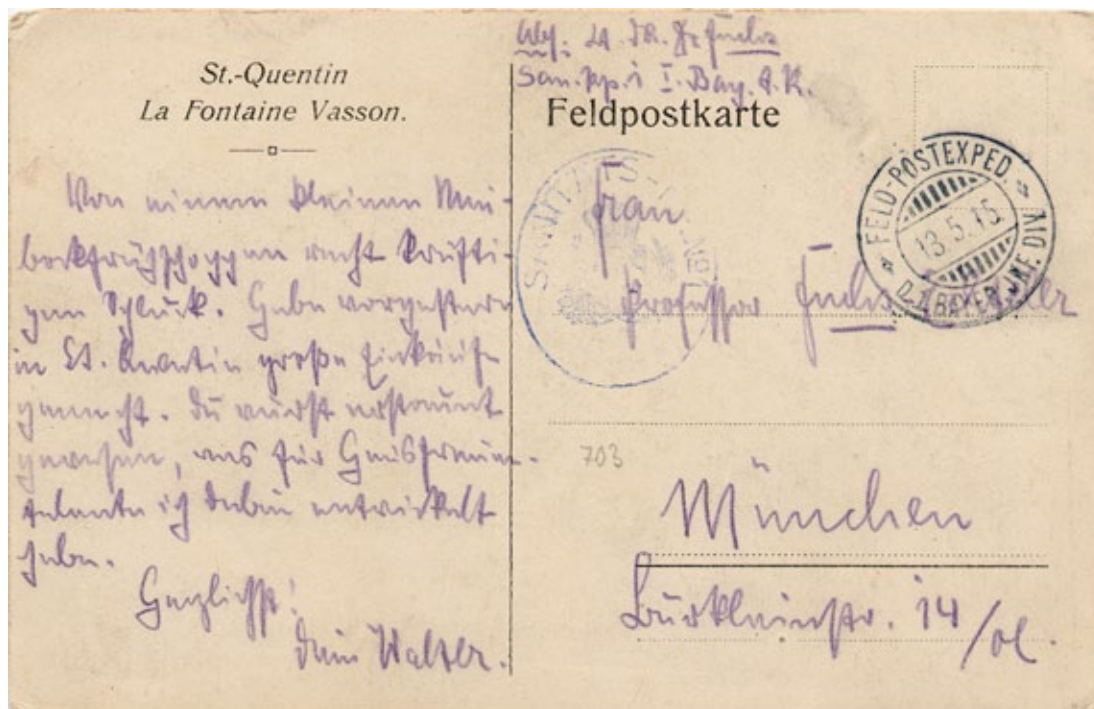 St.-Quentin
La Fontaine Vasson.
Von einem kleinen Mai-
bockfrühschoppen recht kräfti-
gen Schluck. Habe vorgestern
in St. Quentin große Einkäufe
gemacht. Du wärst erstaunt
gewesen, was für Hausfrauen-
talente ich dabei entwickelt
habe.
Herzlichst!
Dein Walter.
Abs: Fuchs
San. Kp. I. Bay. A. K.
Feldpostkarte
FELD-POSTEXPED.
13.5.15
D. 1 BAYER. INF. DIV
SANITÄTS-
Frau
Professor Fuchs
703
München
Bürkleinstr. 14